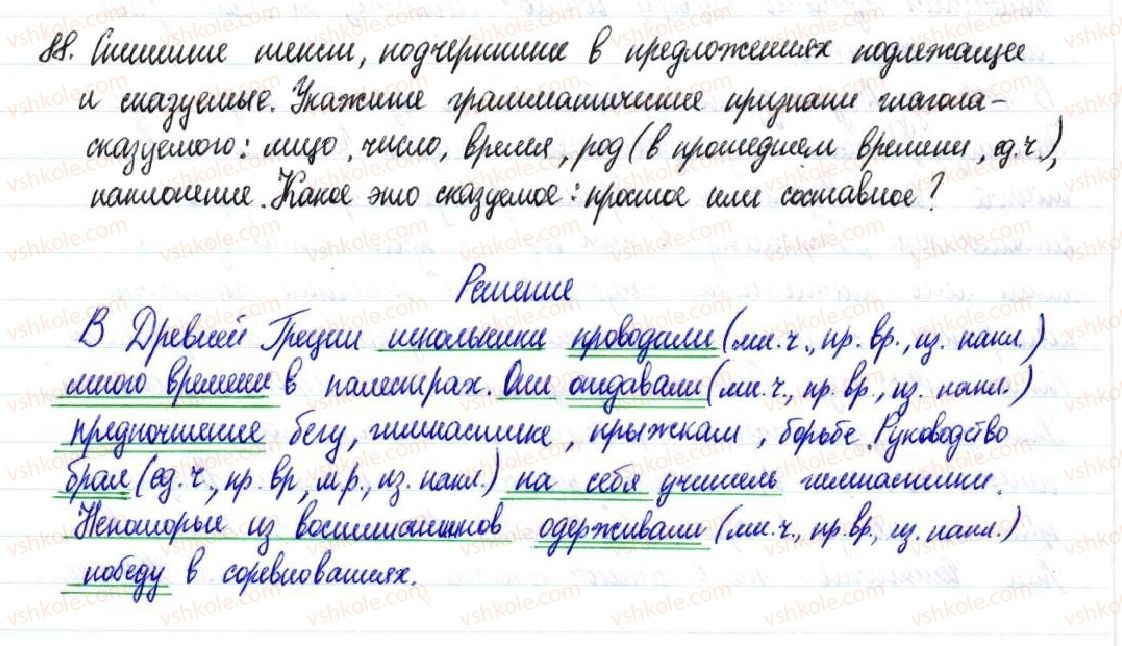 88. Спишите текст, подчеркните в предложениях подлежащее
и сказуемые. Укажите грамматические признаки глагола-
сказуемого: лицо, число, время, род (в прошедшем времени, ед.ч.),
наклонение. Какое это сказуемое: простое или составное?
Решение
В Древней Греции школьники проводили (мн.ч., пр.вр., из. накл.)
много времени в палестрах. Они отдавали (мн.ч., пр.вр., из. накл.)
предпочтение бегу, гимнастике, прыжкам, борьбе. Руководство
брал (ед.ч., пр.вр, м.р., из. накл.) на себя учитель гимнастики.
Некоторые из воспитанников одерживали (мн.ч., пр.вр., из. накл.)
победу в соревнованиях.
vshkole.com